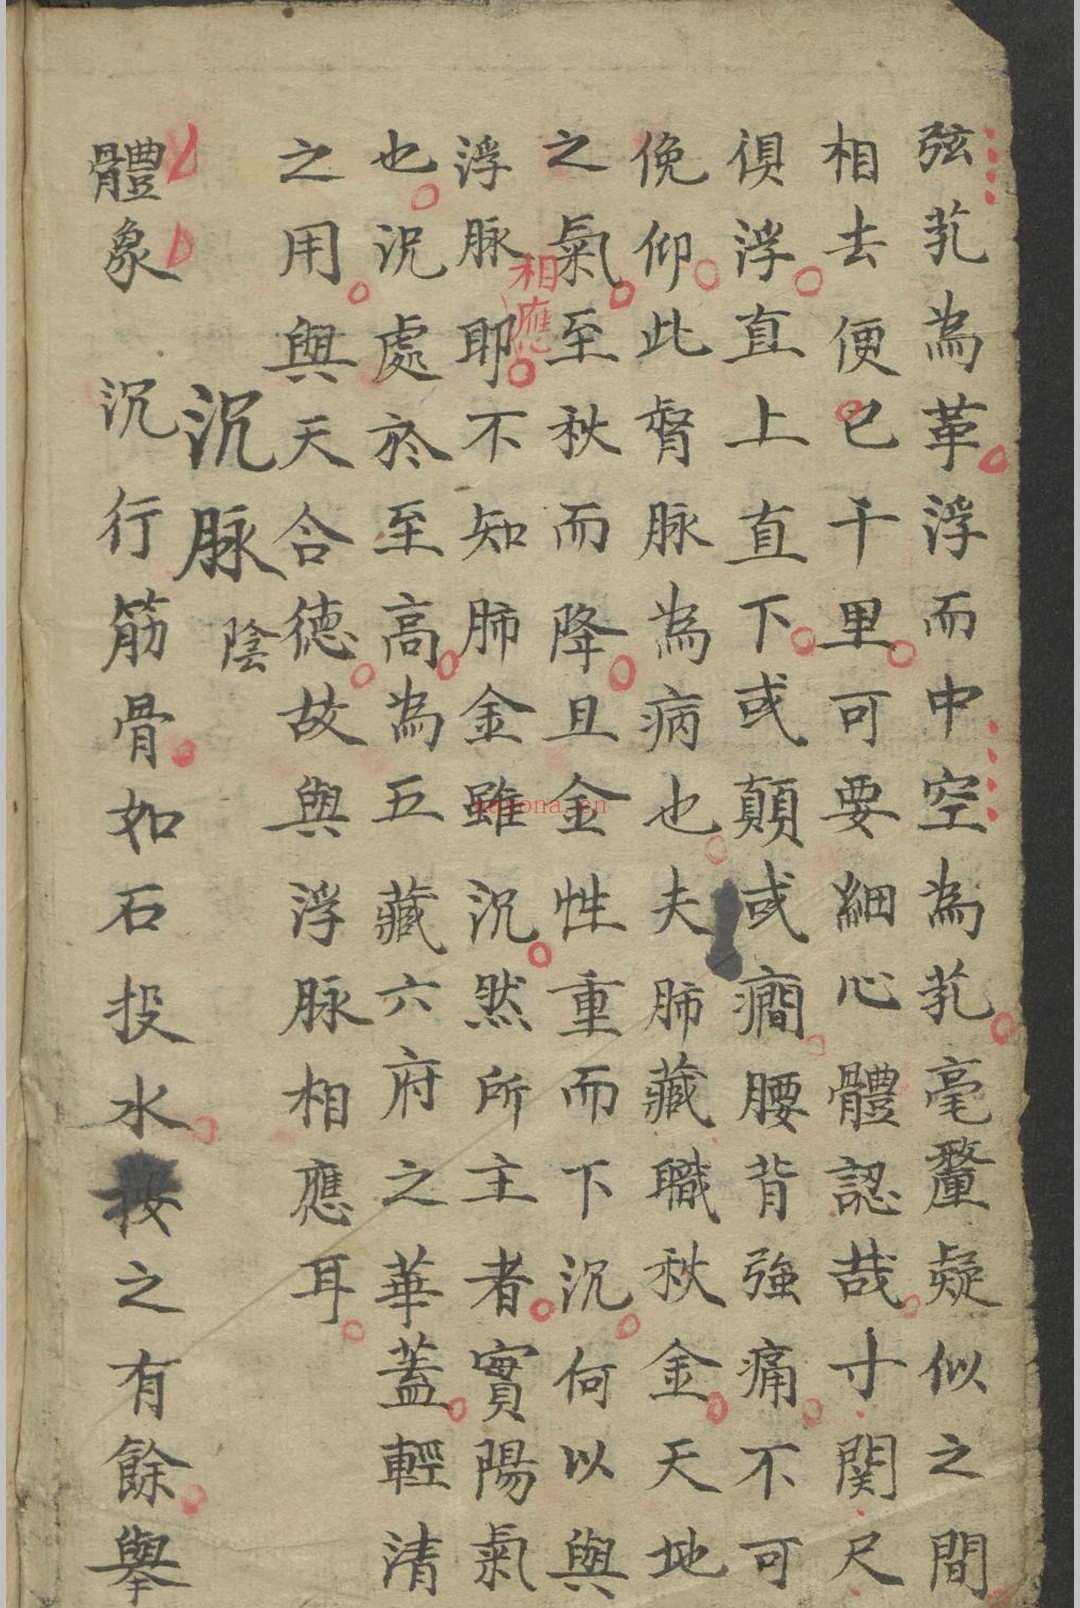 弦芤為革浮而中空為芤毫釐疑似之間
相去便已千里可要細心體認哉寸関尺
俱浮直上直下或顛或癇腰背強痛不可
俛仰此督脉為病也夫肺藏職秋金天地
之氣至秋而降且金性重而下沉何以與
相應
浮脉耶不知肺金雖沉然所主者實陽氣
也況處於至高為五藏六府之華蓋輕清
之用與天合德故與浮脉相應耳
沉脉陰
體象 沉行筋骨如石投水按之有餘舉
nayona.cn